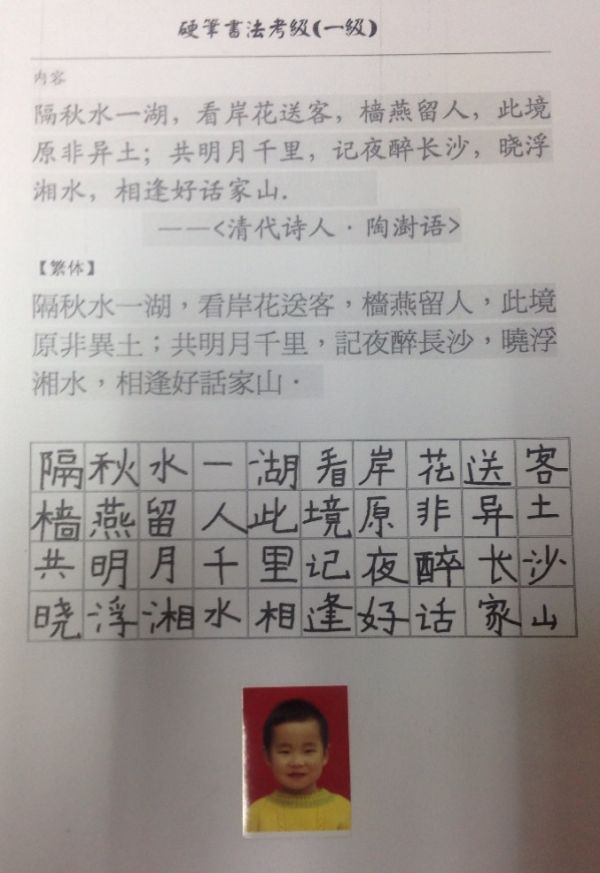 硬筆書法考級(一級)
内容
隔秋水一湖，看岸花送客，樯燕留人，此境
原非异土；共明月千里，记夜醉长沙，晓浮
湘水，相逢好话家山.
——<清代诗人·陶澍语>
【繁体】
隔秋水一湖，看岸花送客，檣燕留人，此境
原非異土；共明月千里，記夜醉長沙，曉浮
湘水，相逢好話家山．
隔秋水一湖看岸花送客
樯燕留人此境原非异土
共明月千里记夜醉长沙
晓浮湘水相逢好话家山